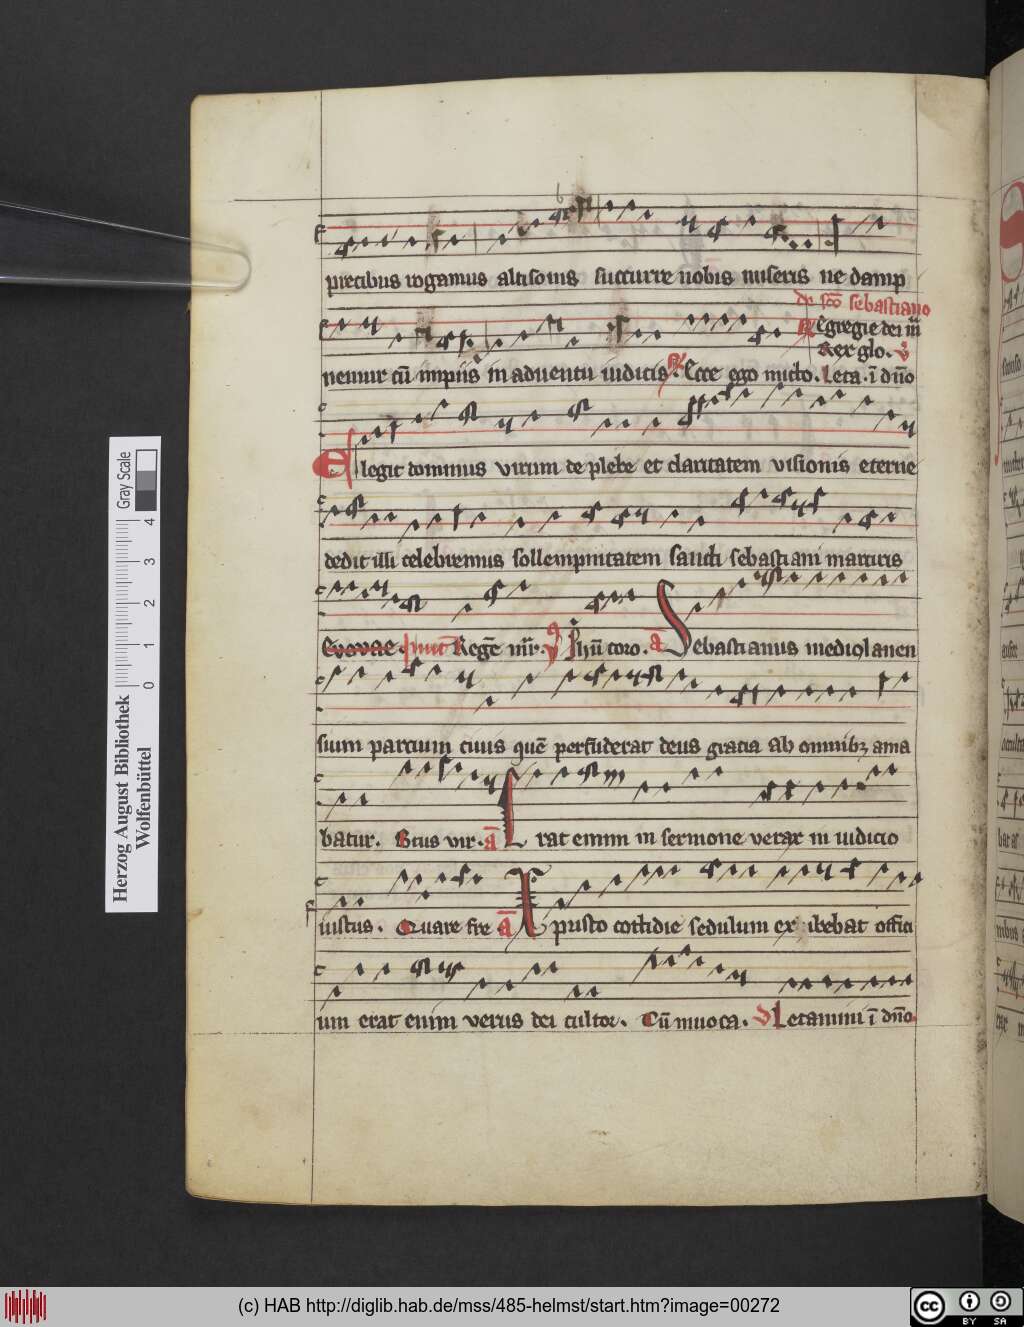 precibus rogamus altisonis succurre nobis miseris ne damp
de sco sebastiano
Egregie dei
Rex glo. v
nemur cu impiis in aduentu iudicis. Ecce ego mitto. Leta. i dno
Elegit dominus virum de plebe et claritatem visionis eterne
dedit illi celebremus sollempnitatem sancti sebastiani martiris
Evovae. Rege mr. coro. a Sebastianus mediolanen
sium partium ciuis que perfuderat deus gracia ab omnibz ama
batur. Btus vir. a Erat enim in sermone verax in iudicio
iustus. Quare fre a Xpristo cottidie sedulum exhibebat offici
um erat enim verus dei cultor. Cu inuoca. Letamini i dno
Herzog August Bibliothek
Wolfenbüttel
Gray Scale
0 1 2 3 4
(c) HAB http://diglib.hab.de/mss/485-helmst/start.htm?image=00272
cc BY SA